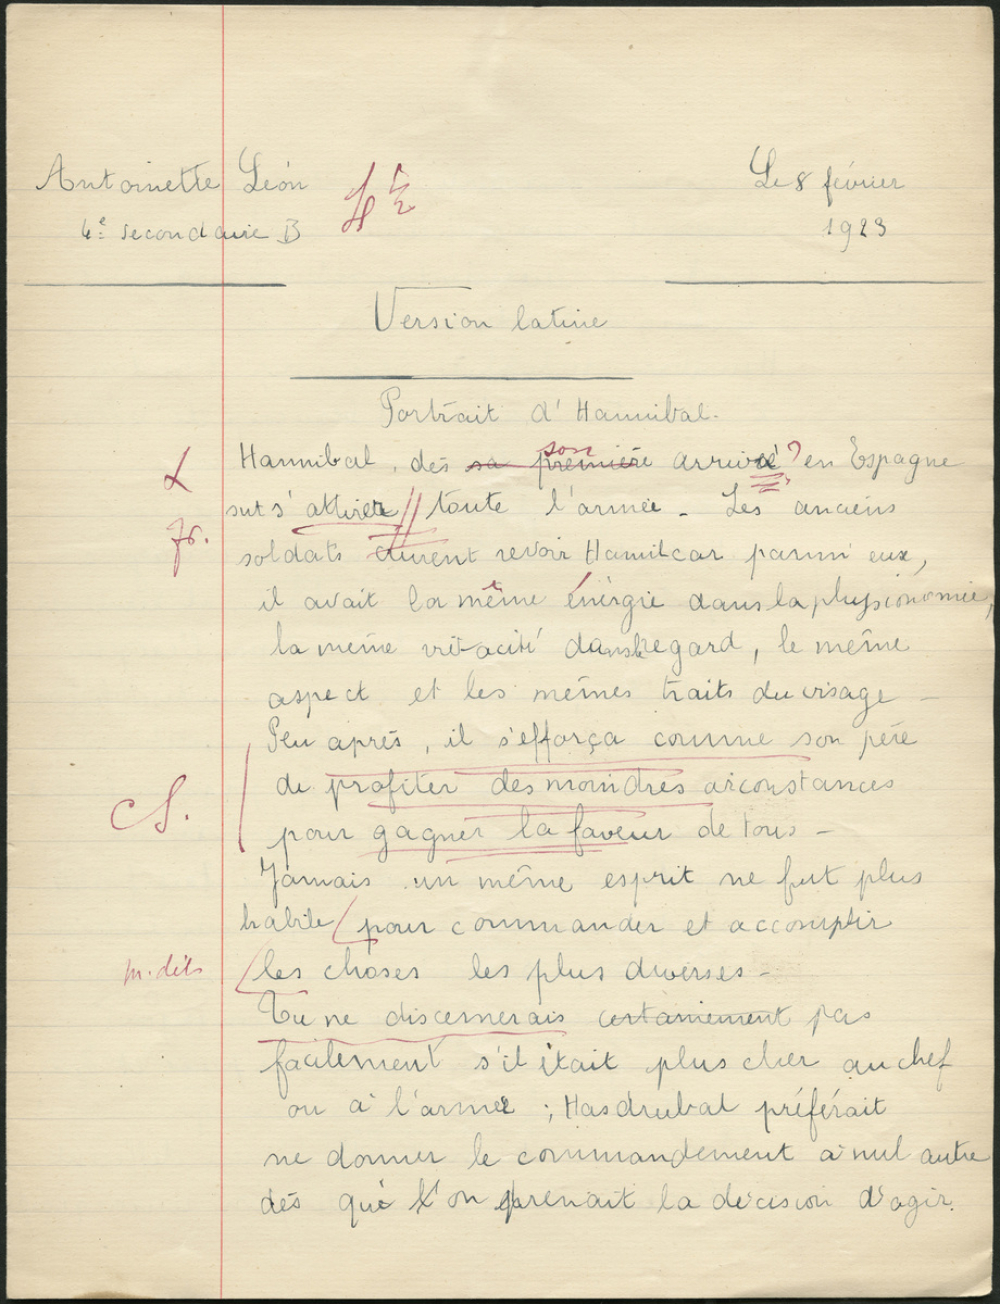 Antoinette Léon
Le 8 février
4e secondaire B
1923
Version latine
Portrait d'Hannibal.
Hannibal, dès sa première son arrivée ? en Espagne
sut s'attirer toute l'armée. Les anciens
fr.
soldats crurent revoir Hamilcar parmi eux,
il avait la même énergie dans la physionomie,
la même vivacité dans le regard, le même
aspect et les mêmes traits du visage.
Peu après, il s'efforça comme son père
de profiter des moindres circonstances
CS.
pour gagner la faveur de tous.
Jamais un même esprit ne fut plus
habile pour commander et accomplir
m. dits
les choses les plus diverses.
Tu ne discernerais certainement pas
facilement s'il était plus cher au chef
ou à l'armée ; Hasdrubal préférait
ne donner le commandement à nul autre
dès que l'on prenait la décision d'agir.